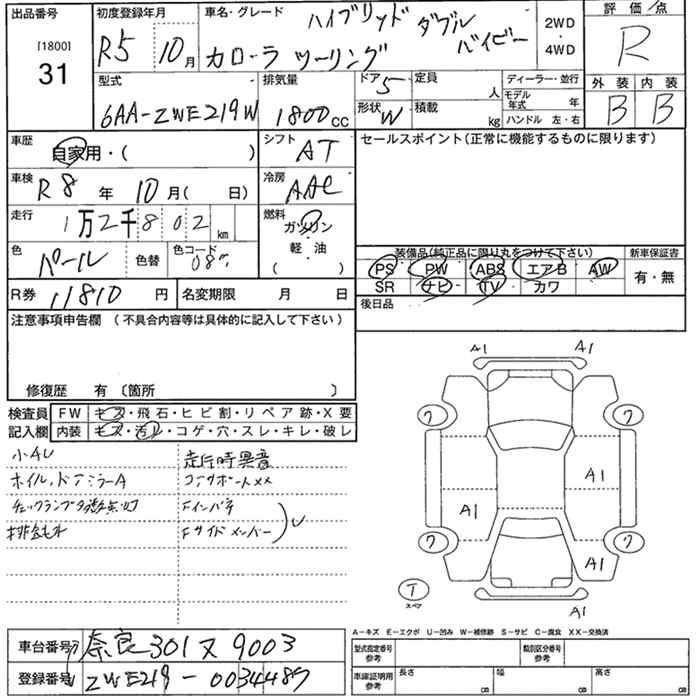 出品番号
[1800]
31
初度登録年月
R5 10月
車名・グレード
ハイブリッド ダブル バイビー
カローラ ツーリング
2WD
・
4WD
評価点
R
外装 内装
B B
型式
6AA-ZWE219W
排気量
1800cc
ドア 5
形状 W
定員 人
積載 kg
ディーラー・並行
モデル年式 年
ハンドル 左・右
車歴
自家用・( )
シフト
AT
車検
R8年 10月( 日)
冷房
AAC
走行
1万2千802 km
燃料
ガソリン
・
軽・油
( )
色
パール
色替
色コード
セールスポイント(正常に機能するものに限ります)
装備品(純正品に限り丸をつけて下さい)
PS PW ABS エアB AW
SR ナビ TV カワ
新車保証書
有・無
R券 11810 円
名変期限 月 日
後日品
注意事項申告欄 (不具合内容等は具体的に記入して下さい)
修復歴 有〔箇所 〕
検査員
記入欄
FW キズ・飛石・ヒビ割・リペア跡・X要
内装 キズ・汚レ・コゲ・穴・スレ・キレ・破レ
小キU
ホイル、ドアミラーA
チェックランプ多数点灯
走行時異音
コアサポートXX
Fインパネ
Fサイドメンバー
A1
A1
ワ
ワ
A1
A1
ワ
ワ
A1
A1
T
スペア
A-キズ E-エクボ U-凹み W-補修跡 S-サビ C-腐食 XX-交換済
車台番号
奈良 301 ヌ 9003
登録番号
ZWE219-0034487
型式指定番号
参考
類別区分番号
参考
車庫証明用
参考
長さ cm
幅 cm
高さ cm